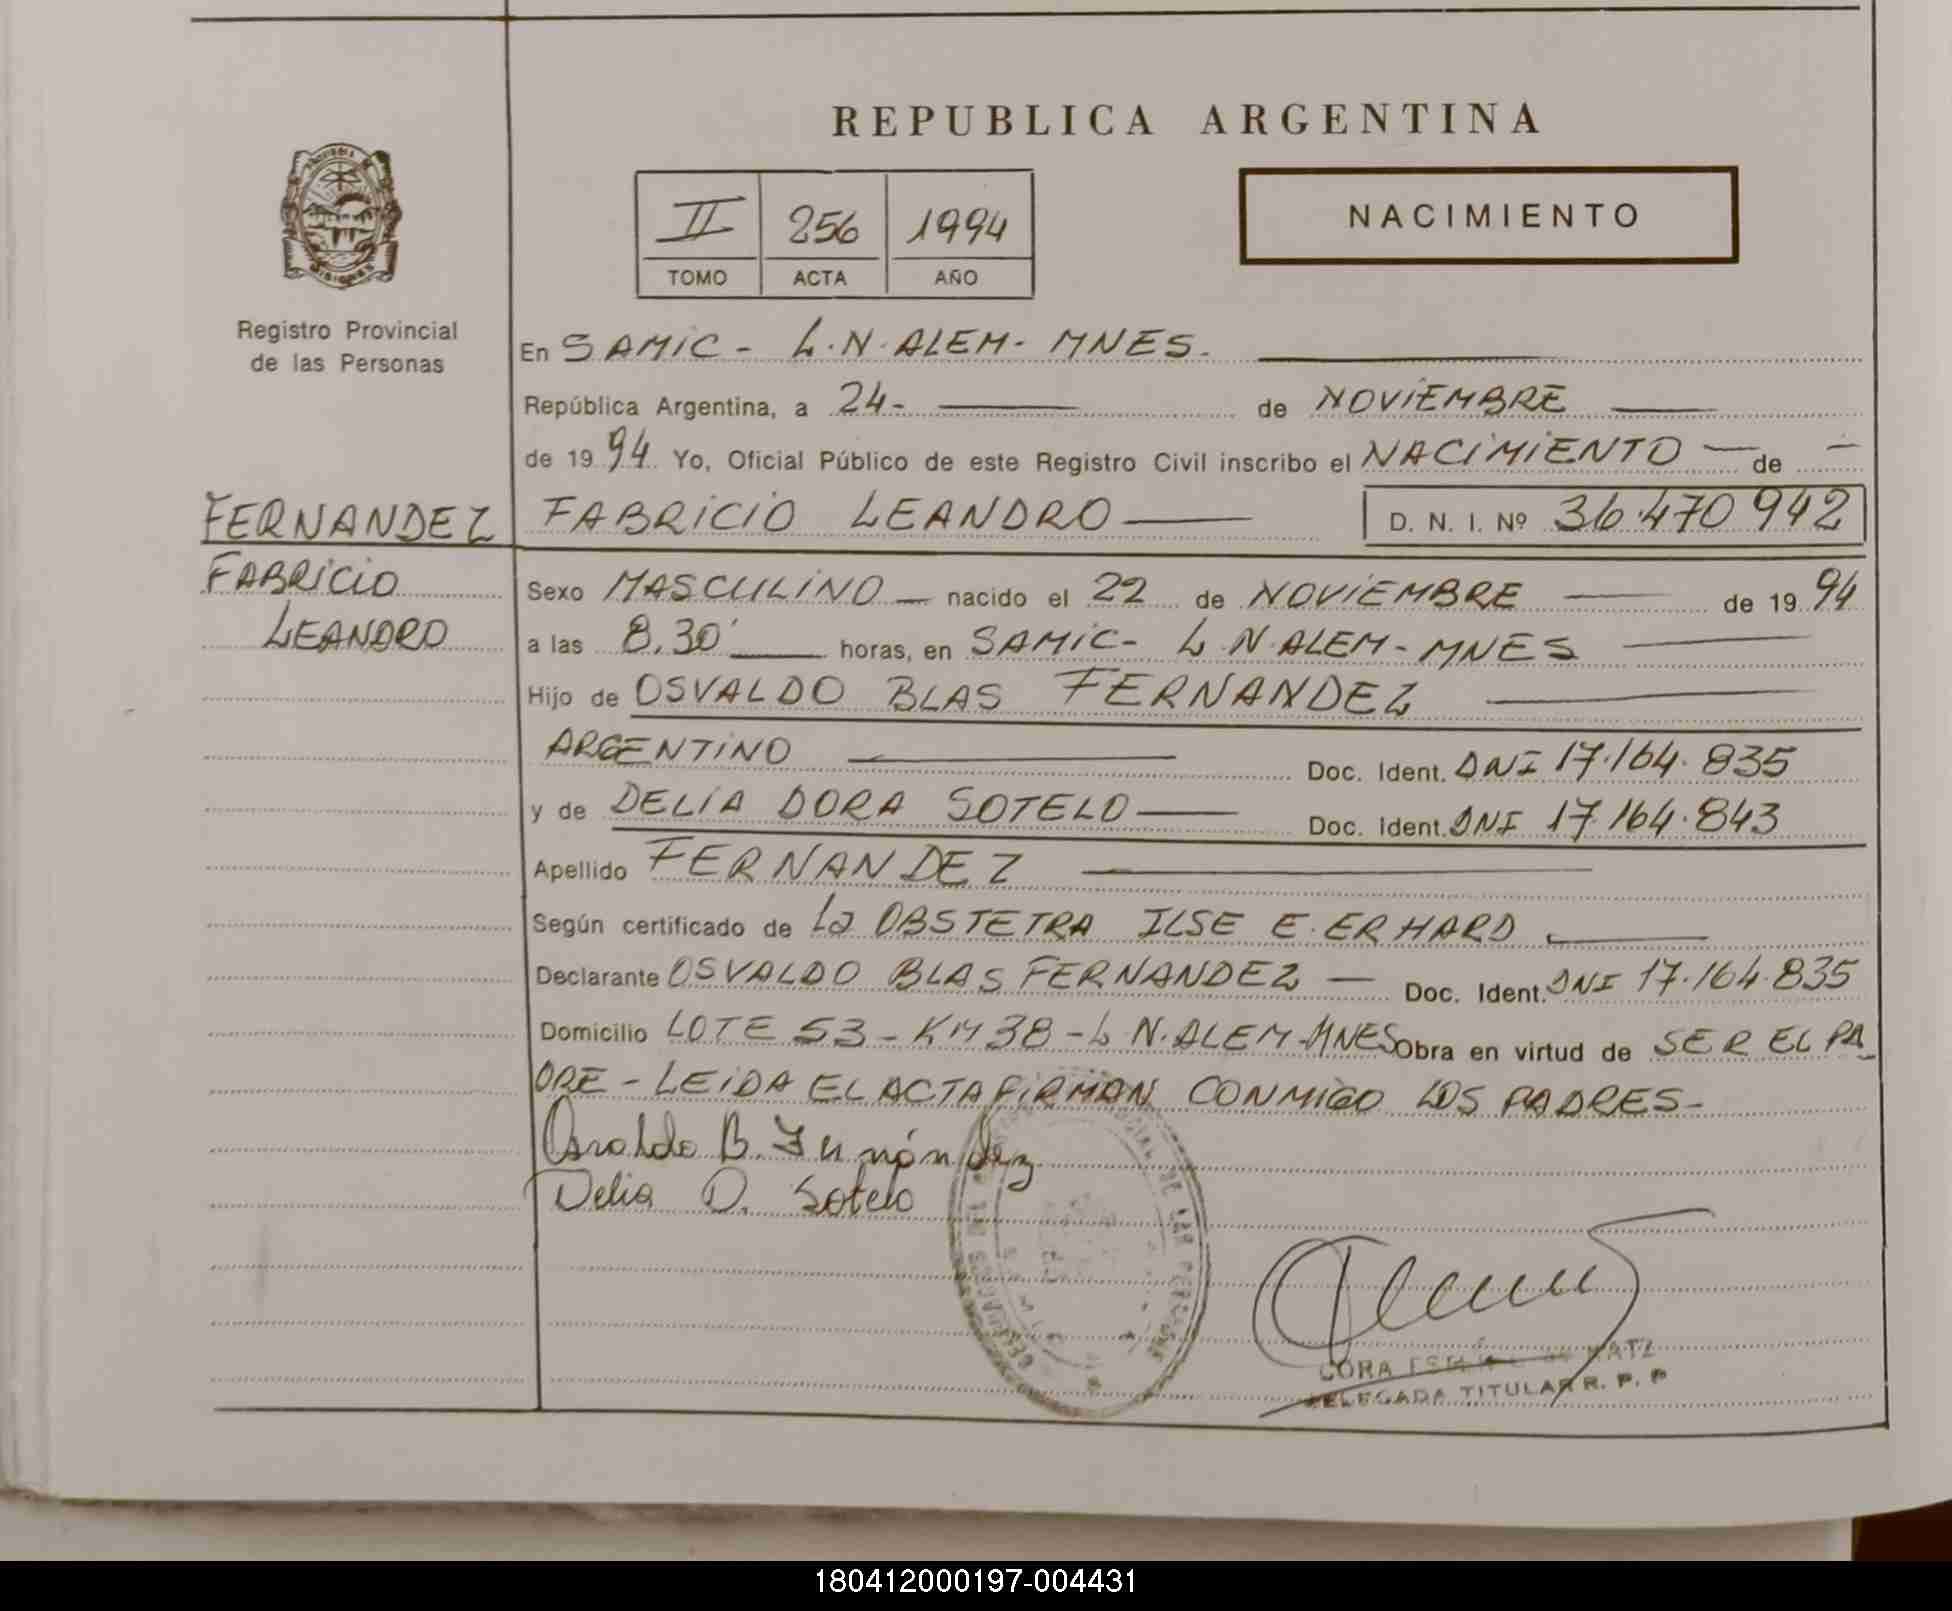 REPUBLICA ARGENTINA
II 256 1994
TOMO ACTA AÑO
NACIMIENTO
Registro Provincial
de las Personas
En SAMIC - L.N. ALEM - MNES.
República Argentina, a 24- de NOVIEMBRE
de 1994 Yo, Oficial Público de este Registro Civil inscribo el NACIMIENTO de
FERNANDEZ
FABRICIO
LEANDRO
FABRICIO LEANDRO D. N. I. Nº 36.470942
Sexo MASCULINO nacido el 22 de NOVIEMBRE de 1994
a las 8,30' horas, en SAMIC- L N. ALEM - MNES
Hijo de OSVALDO BLAS FERNANDEZ
ARGENTINO Doc. Ident. DNI 17.164.835
y de DELIA DORA SOTELO Doc. Ident. DNI 17.164.843
Apellido FERNANDEZ
Según certificado de La OBSTETRA ILSE E. ERHARD
Declarante OSVALDO BLAS FERNANDEZ Doc. Ident. DNI 17.164.835
Domicilio LOTE 53 - KM 38 - L N. ALEM - MNES Obra en virtud de SER EL PA
DRE - LEIDA EL ACTA FIRMAN CONMIGO LOS PADRES-
Osvaldo B. Fernández
Delia D. Sotelo
DE LAS PERSONAS
CORA KATZ
DELEGADA TITULAR R. P. P
180412000197-004431